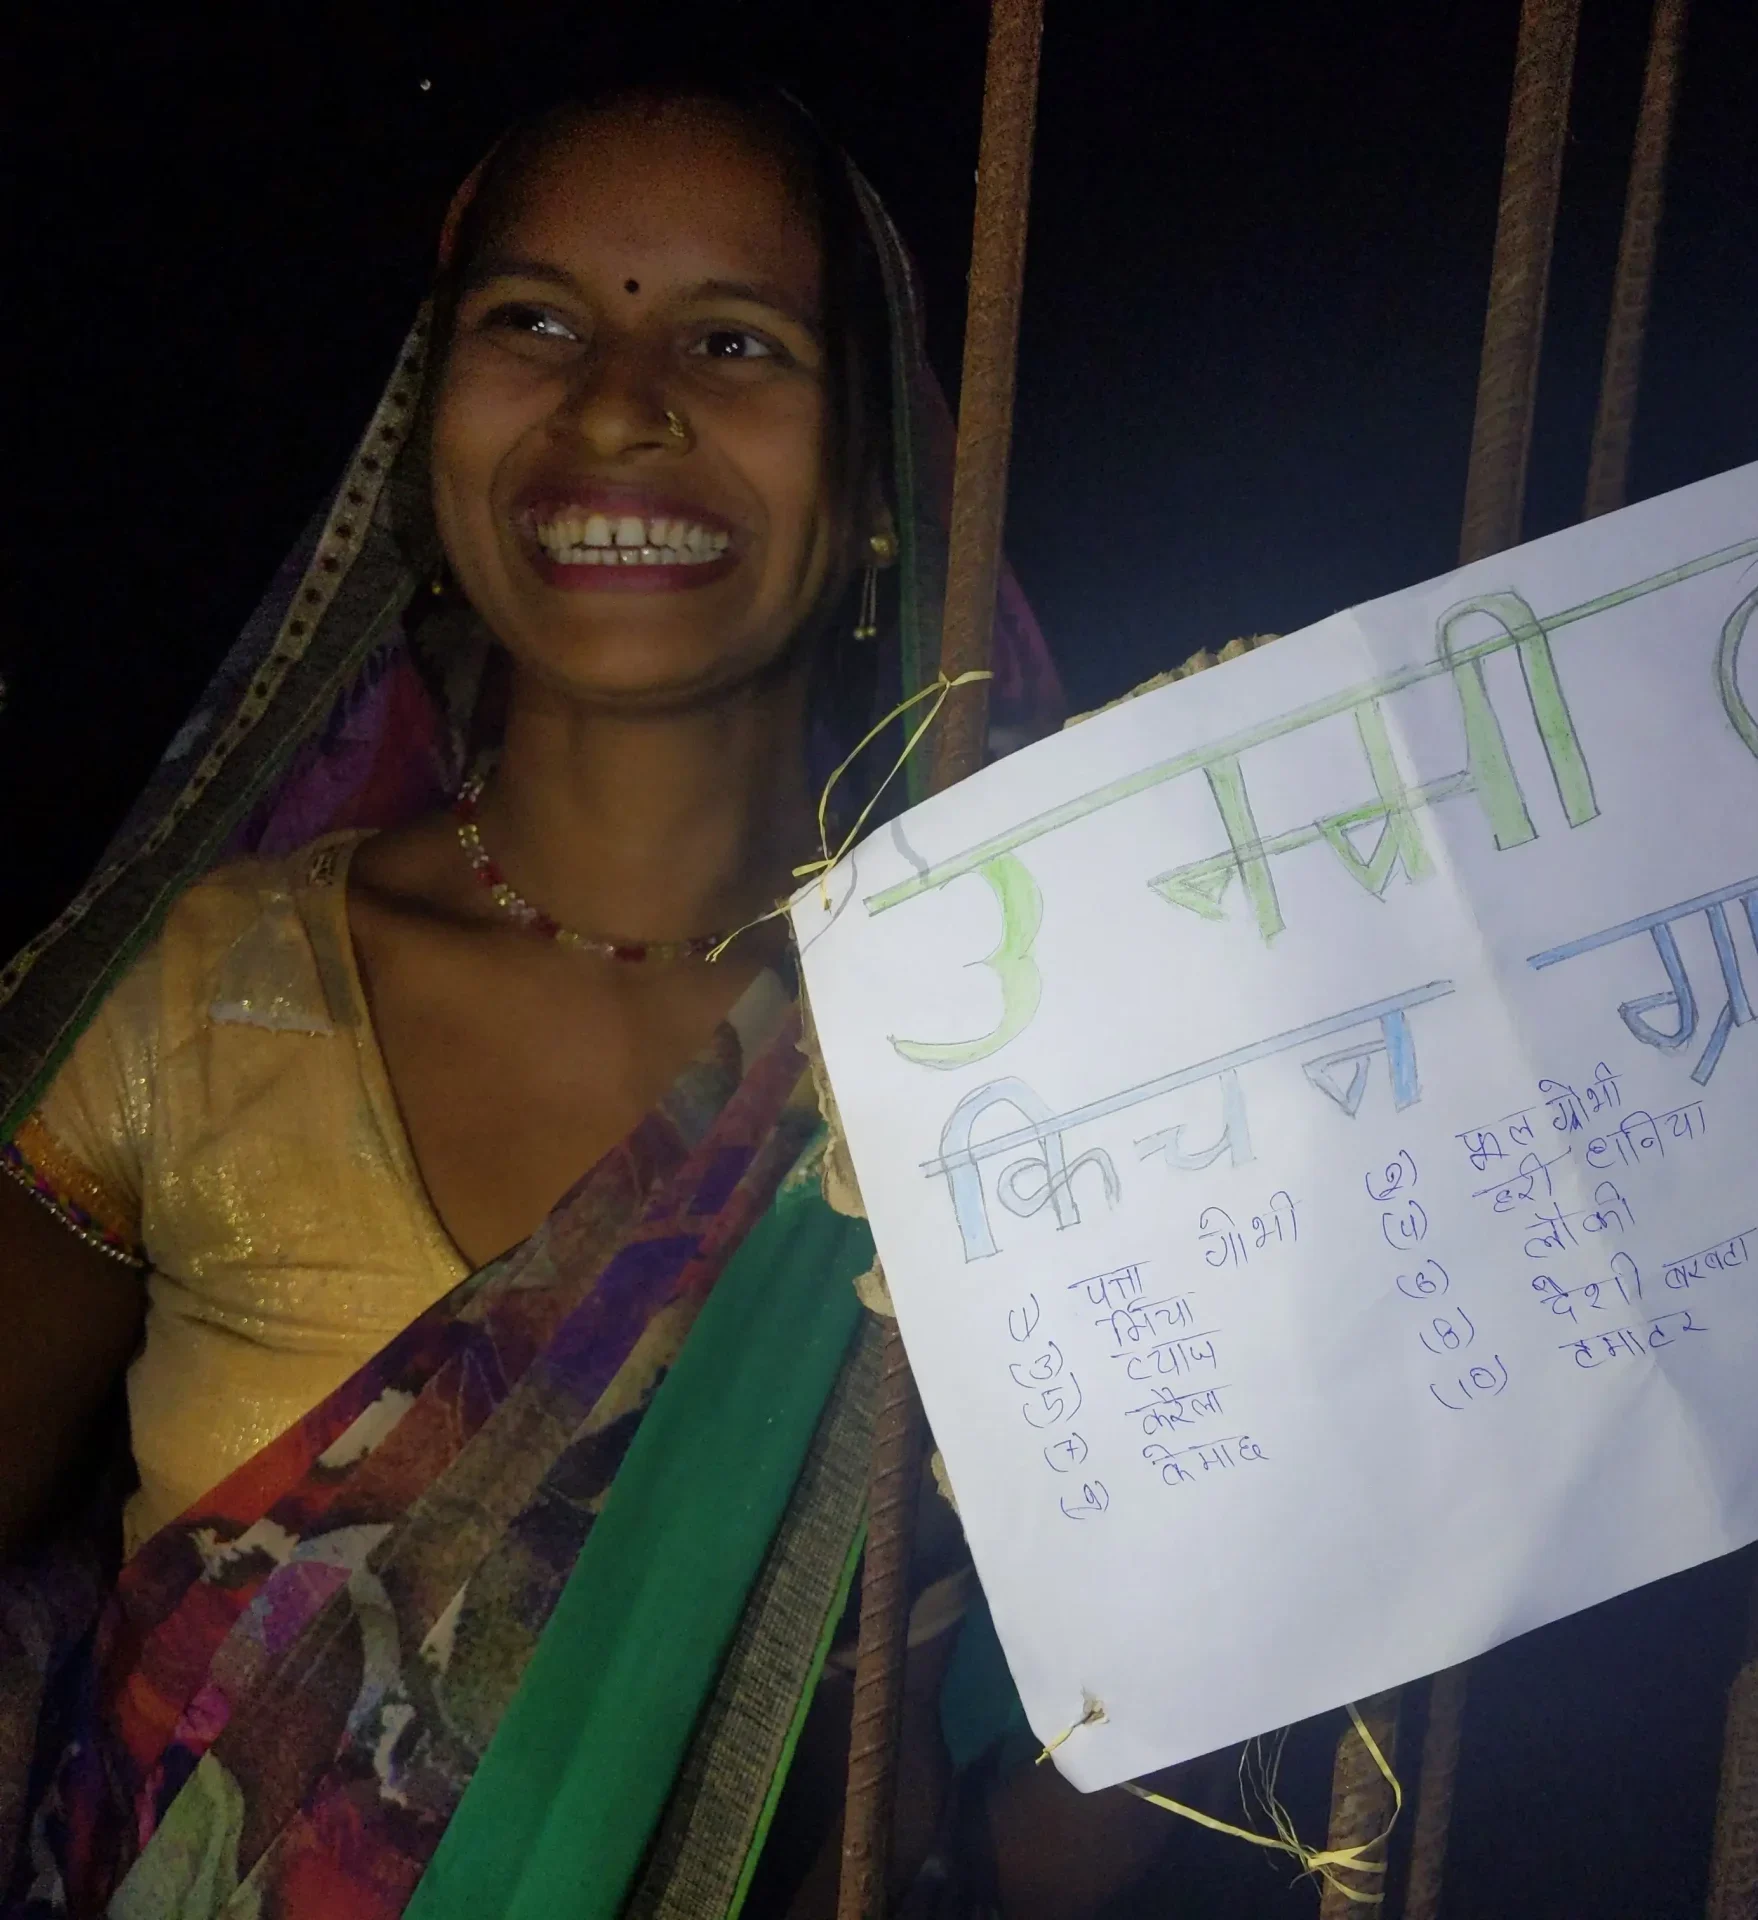 उन्नमी
किचन ग्रा
(1) पत्ता गोभी (2) फूल गोभी
(3) मिर्चा (4) हरी धनिया
(5) प्याज (6) लौकी
(7) करैला (8) देशी बरबटा
(9) केमाछ (10) टमाटर